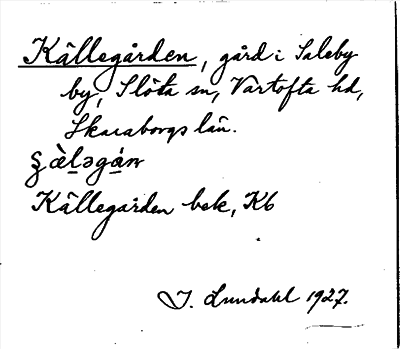 Källegården, gård i Saleby
by, Slöta sn, Vartofta hd,
Skaraborgs län.
Källegården bek, Kb
I. Lundahl 1927.